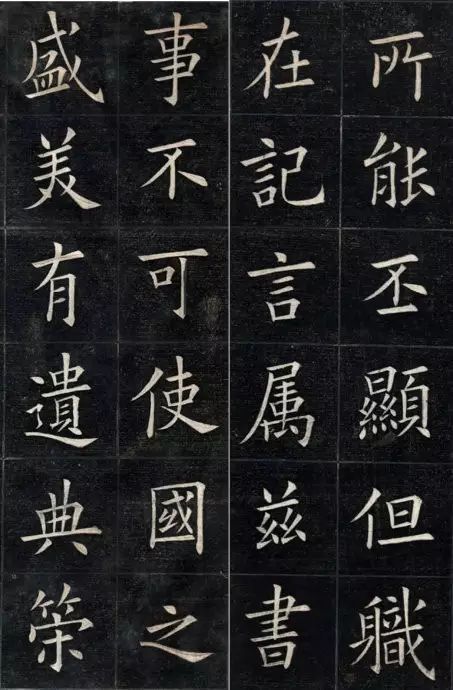 所能丕顯但軄
在記言属兹書
事不可使國之
盛美有遺典策